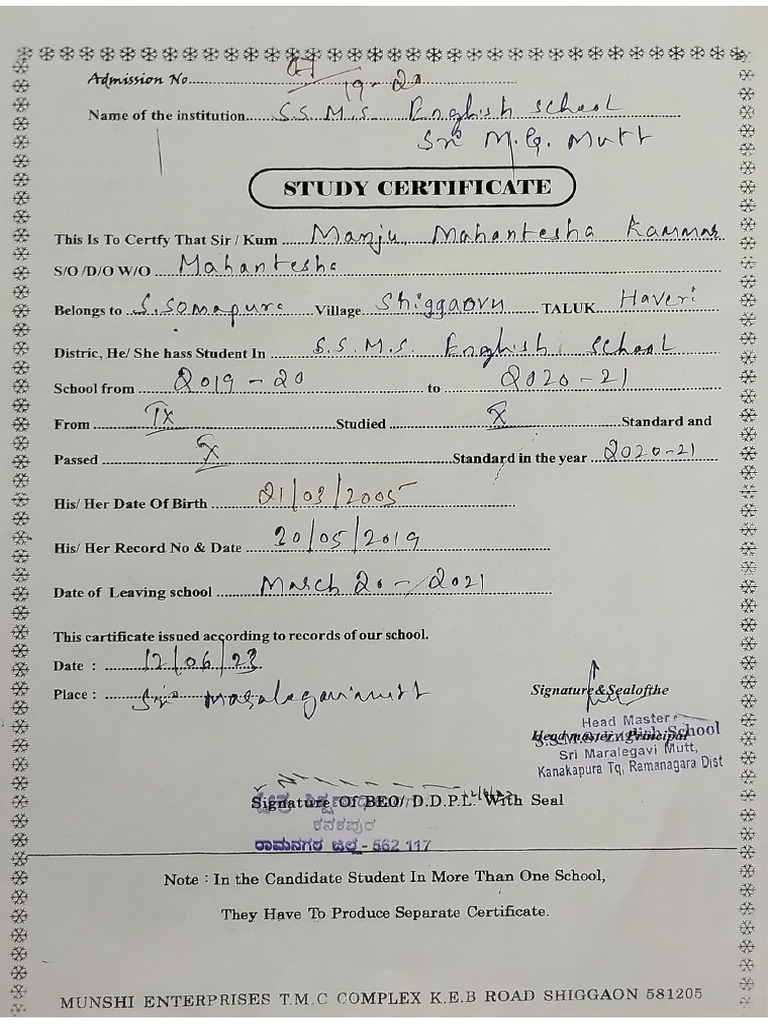 Admission No 19-20
Name of the institution S.S.M.S. English school
Sri M.G. Mutt
STUDY CERTIFICATE
This Is To Certfy That Sir / Kum Manju Mahantesha Kammar
S/O /D/O W/O Mahantesha
Belongs to S.Somapura Village Shiggaovu TALUK Haveri
Distric, He/ She hass Student In S.S.M.S. English school
School from 2019-20 to 2020-21
From IX Studied X Standard and
Passed X Standard in the year 2020-21
His/ Her Date Of Birth 21/03/2005
His/ Her Record No & Date 20/05/2019
Date of Leaving school March 20-2021
This cartificate issued according to records of our school.
Date : 12/06/23
Place : Sri Maralegavimutt
Signature&Sealofthe
Head Master
Headmaster / Principal
S.S.M.S. English School
Sri Maralegavi Mutt,
Kanakapura Tq, Ramanagara Dist
Signature Of BEO/ D.D.P.I. With Seal
ಕನಕಪುರ
ರಾಮನಗರ ಜಿಲ್ಲೆ - 562 117
Note : In the Candidate Student In More Than One School,
They Have To Produce Separate Certificate.
MUNSHI ENTERPRISES T.M.C COMPLEX K.E.B ROAD SHIGGAON 581205